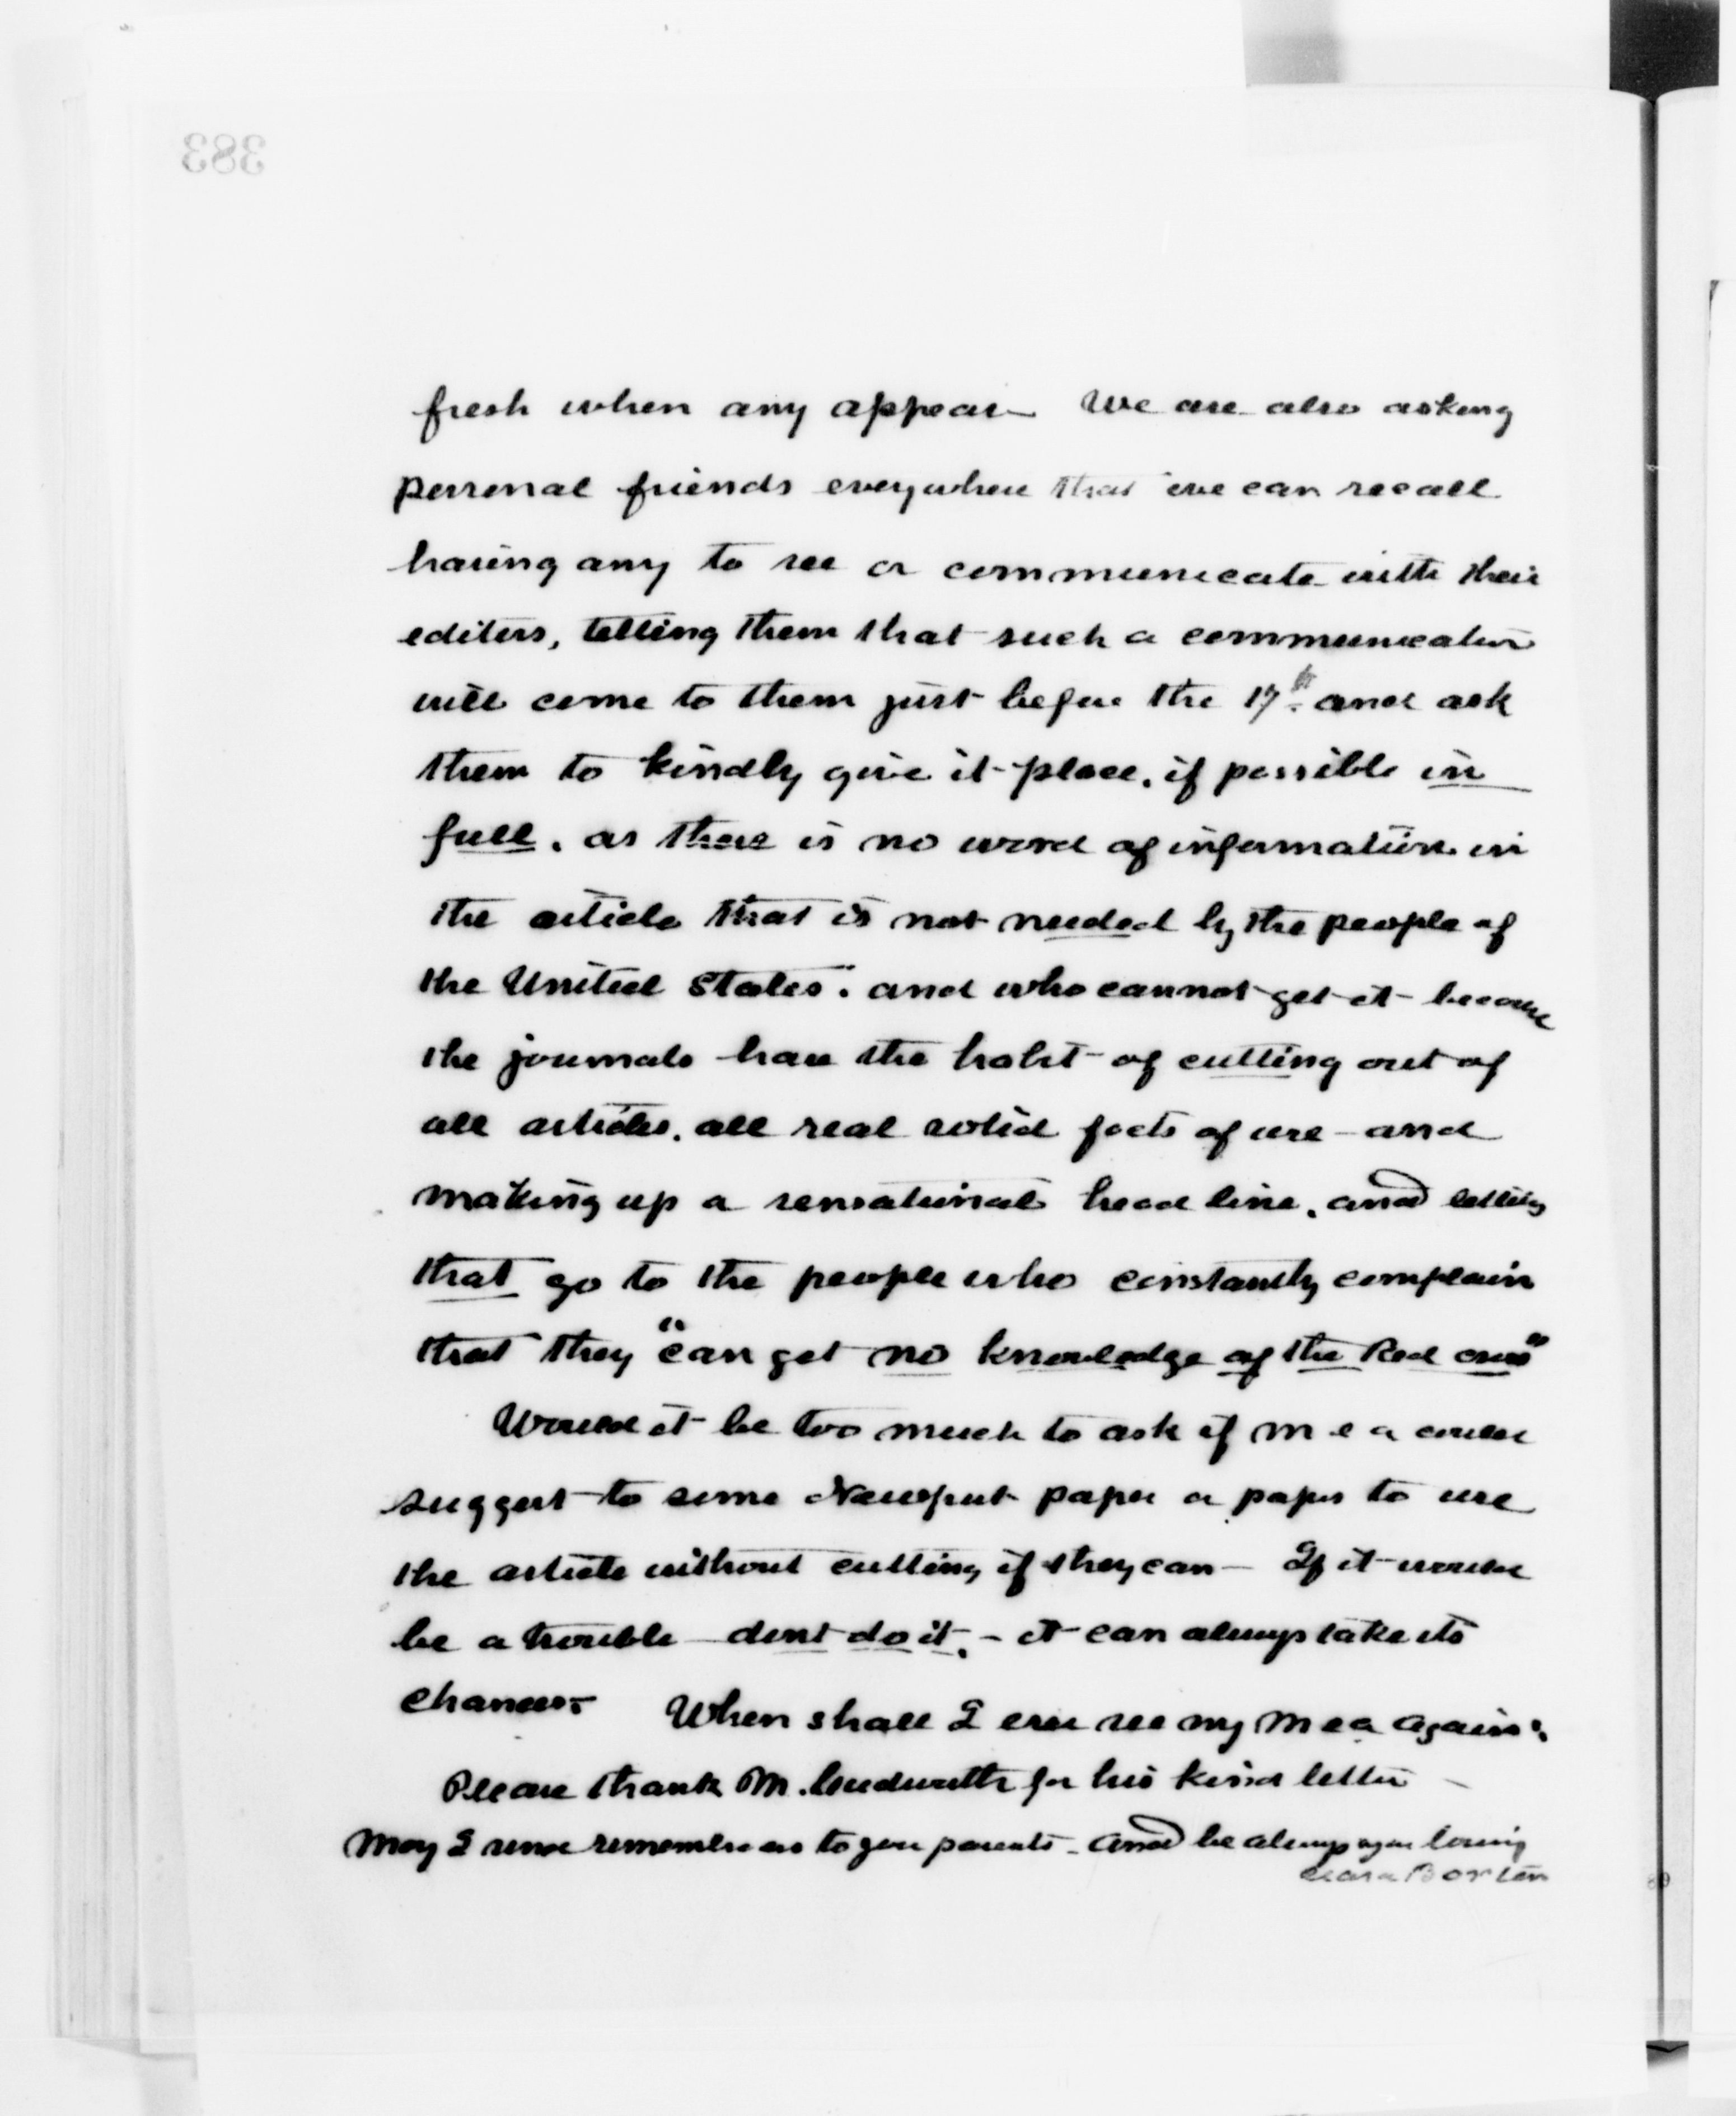 383
fresh when any appear – We are also asking
personal friends everywhere that we can recall
having any to see or communicate with their
editors, telling them that such a communication
will come to them just before the 17th. and ask
them to kindly give it place, if possible in
full. as there is no word of information in
the article that is not needed by the people of
the United States. and who cannot get it because
the journals have the habit of cutting out of
all articles, all real solid facts of use – and
making up a sensational head line, and letting
that go to the people who constantly complain
that they "can get no knowledge of the Red Cross"
Would it be too much to ask if Mea could
suggest to some Newport paper or papers to use
the article without cutting if they can – If it would
be a trouble dont do it. – it can always take its
chances. When shall I ever see my Mea again.
Please thank Mr. for his kind letter –
May I send remembrances to your parents – and be always your loving
Clara Barton